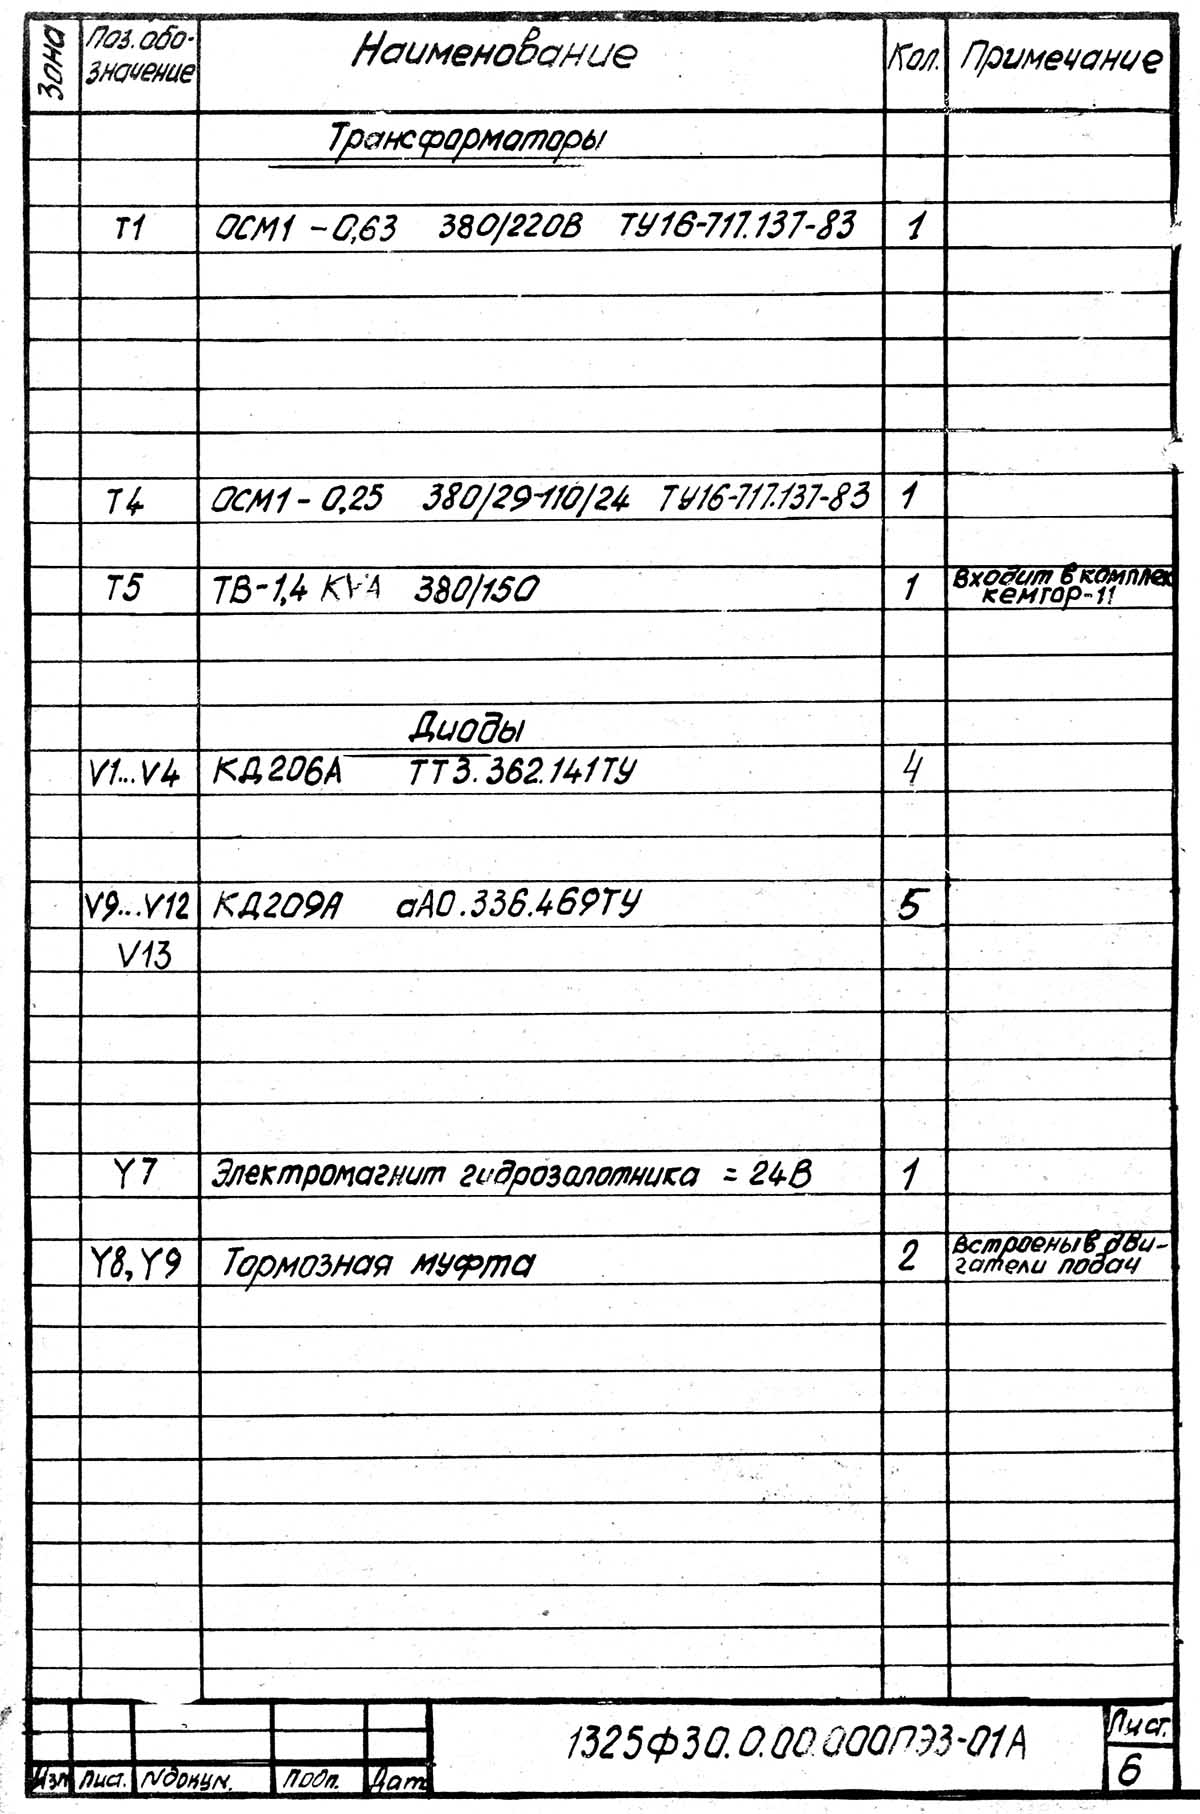 Зона
Поз. обо-
значение
Наименование
Кол.
Примечание
Трансформаторы
Т1 ОСМ1-0,63 380/220В ТУ16-717.137-83 1
Т4 ОСМ1-0,25 380/29-110/24 ТУ16-717.137-83 1
Т5 ТВ-1,4 KVA 380/150 1 Входит в комплек
кемтор-11
Диоды
V1...V4 КД206А ТТ3.362.141ТУ 4
V9...V12 КД209А аА0.336.469ТУ 5
V13
Y7 Электромагнит гидрозолотника = 24В 1
Y8, Y9 Тормозная муфта 2 Встроены в дви-
гатели подач
1325Ф30.0.00.000ПЭ3-01А
Лист.
6
Изм Лист. №докум. Подп. Дат